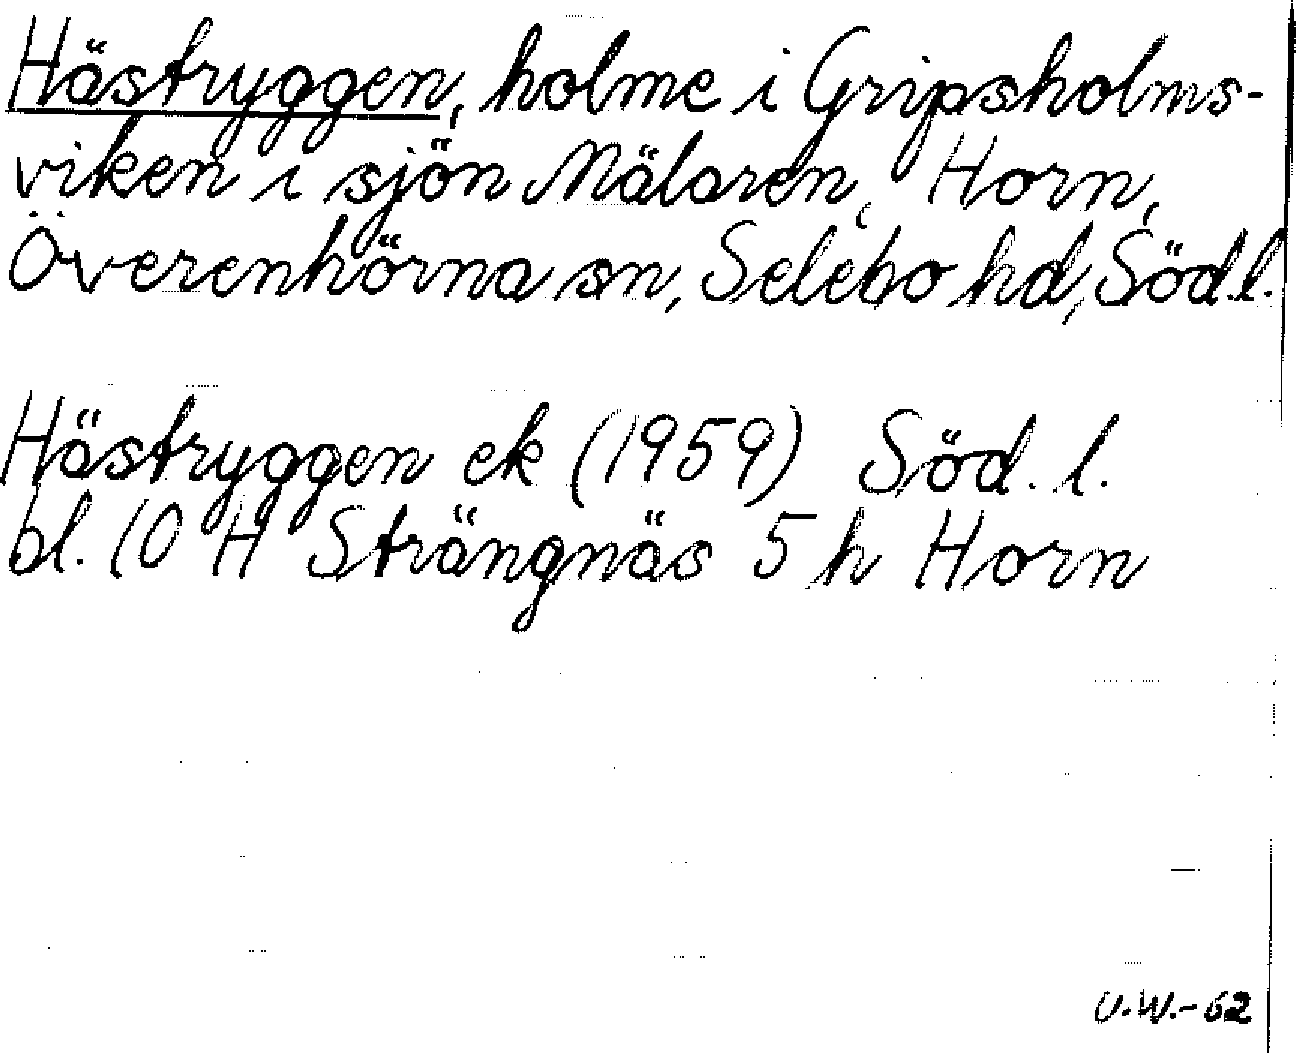 Hästryggen, holme i Gripsholms-
viken i sjön Mälaren, Horn,
Överenhörna sn, Selebo hd, Söd.l.
Hästryggen ek (1959) Söd. l.
bl. 10 H Strängnäs 5 h Horn
U.W.-62